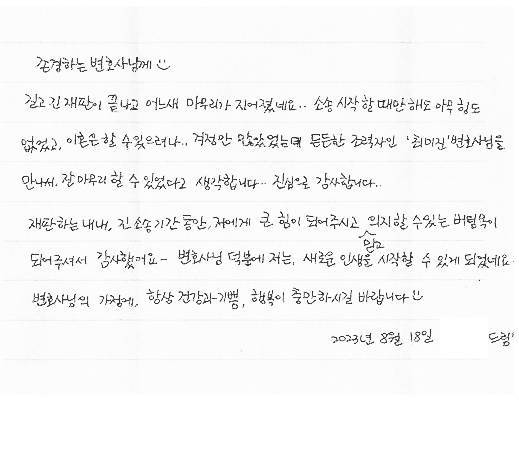 존경하는 변호사님께
길고 긴 재판이 끝나고 어느새 마무리가 지어졌네요.. 소송 시작할 때만 해도 아무 힘도
없었고, 이혼은 할 수 있으려나.. 걱정만 많았었는데 든든한 조력자인 '최미진' 변호사님을
만나서, 잘 마무리 할 수 있었다고 생각합니다... 진심으로 감사합니다..
재판하는 내내, 긴 소송기간 동안, 저에게 큰 힘이 되어주시고 믿고 의지할 수 있는 버팀목이
되어주셔서 감사했어요~ 변호사님 덕분에 저는, 새로운 인생을 시작할 수 있게 되었네요.
변호사님의 가정에, 항상 건강과 기쁨, 행복이 충만하시길 바랍니다
2023년 8월 18일 드림